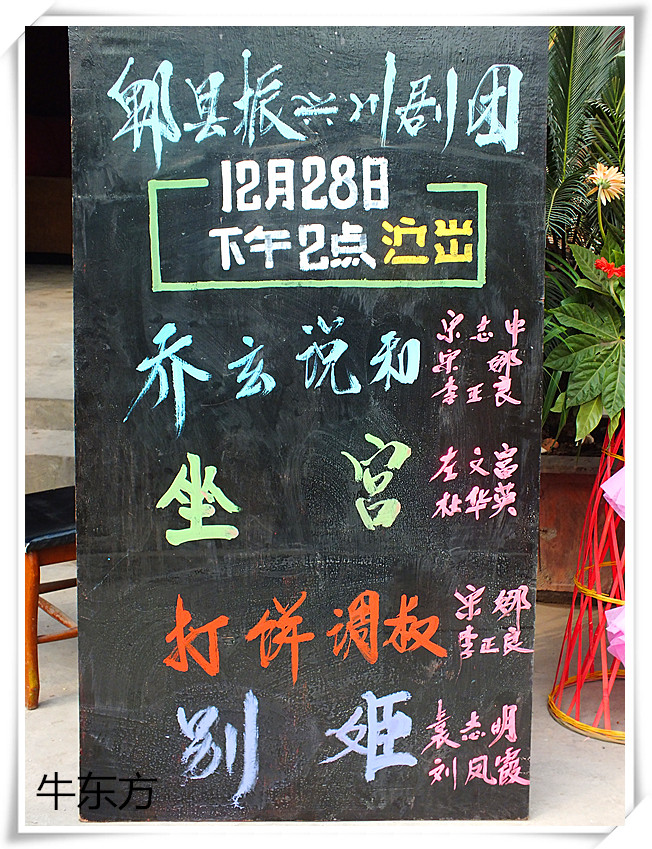 郫县振兴川剧团
12月28日
下午2点 演出
乔玄说和 宋志中
宋娜
李正良
坐宫 左文富
杜华英
打饼调叔 宋娜
李正良
别姬 袁志明
刘凤霞
牛东方